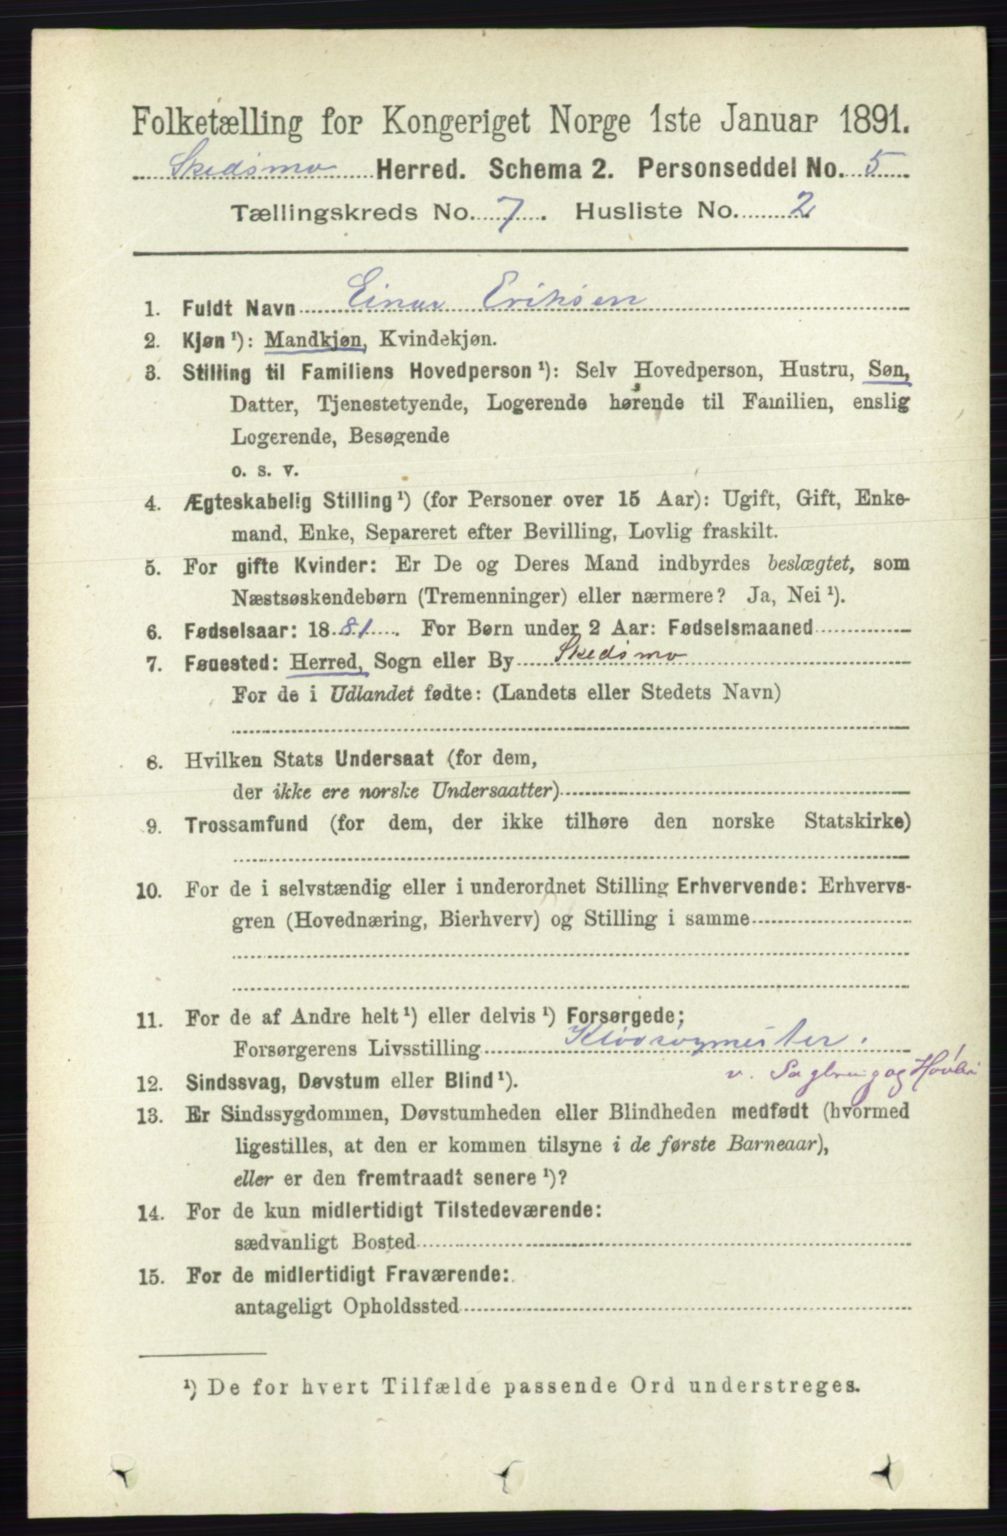 Folketælling for Kongeriget Norge 1ste Januar 1891.
Skedsmo Herred. Schema 2. Personseddel No. 5
Tællingskreds No. 7. Husliste No. 2
1. Fuldt Navn Einar Eriksen
2. Kjøn ¹): Mandkjøn, Kvindekjøn.
3. Stilling til Familiens Hovedperson ¹): Selv Hovedperson, Hustru, Søn,
Datter, Tjenestetyende, Logerende hørende til Familien, enslig
Logerende, Besøgende
o. s. v.
4. Ægteskabelig Stilling ¹) (for Personer over 15 Aar): Ugift, Gift, Enke-
mand, Enke, Separeret efter Bevilling, Lovlig fraskilt.
5. For gifte Kvinder: Er De og Deres Mand indbyrdes beslægtet, som
Næstsøskendebørn (Tremenninger) eller nærmere? Ja, Nei ¹).
6. Fødselsaar: 1881. For Børn under 2 Aar: Fødselsmaaned
7. Fødested: Herred, Sogn eller By Skedsmo
For de i Udlandet fødte: (Landets eller Stedets Navn)
8. Hvilken Stats Undersaat (for dem,
der ikke ere norske Undersaatter)
9. Trossamfund (for dem, der ikke tilhøre den norske Statskirke)
10. For de i selvstændig eller i underordnet Stilling Erhvervende: Erhvervs-
gren (Hovednæring, Bierhverv) og Stilling i samme
11. For de af Andre helt ¹) eller delvis ¹) Forsørgede;
Forsørgerens Livsstilling
v. Sagbrug og Høvleri
12. Sindssvag, Døvstum eller Blind ¹).
13. Er Sindssygdommen, Døvstumheden eller Blindheden medfødt (hvormed
ligestilles, at den er kommen tilsyne i de første Barneaar),
eller er den fremtraadt senere ¹)?
14. For de kun midlertidigt Tilstedeværende:
sædvanligt Bosted
15. For de midlertidigt Fraværende:
antageligt Opholdssted
¹) De for hvert Tilfælde passende Ord understreges.